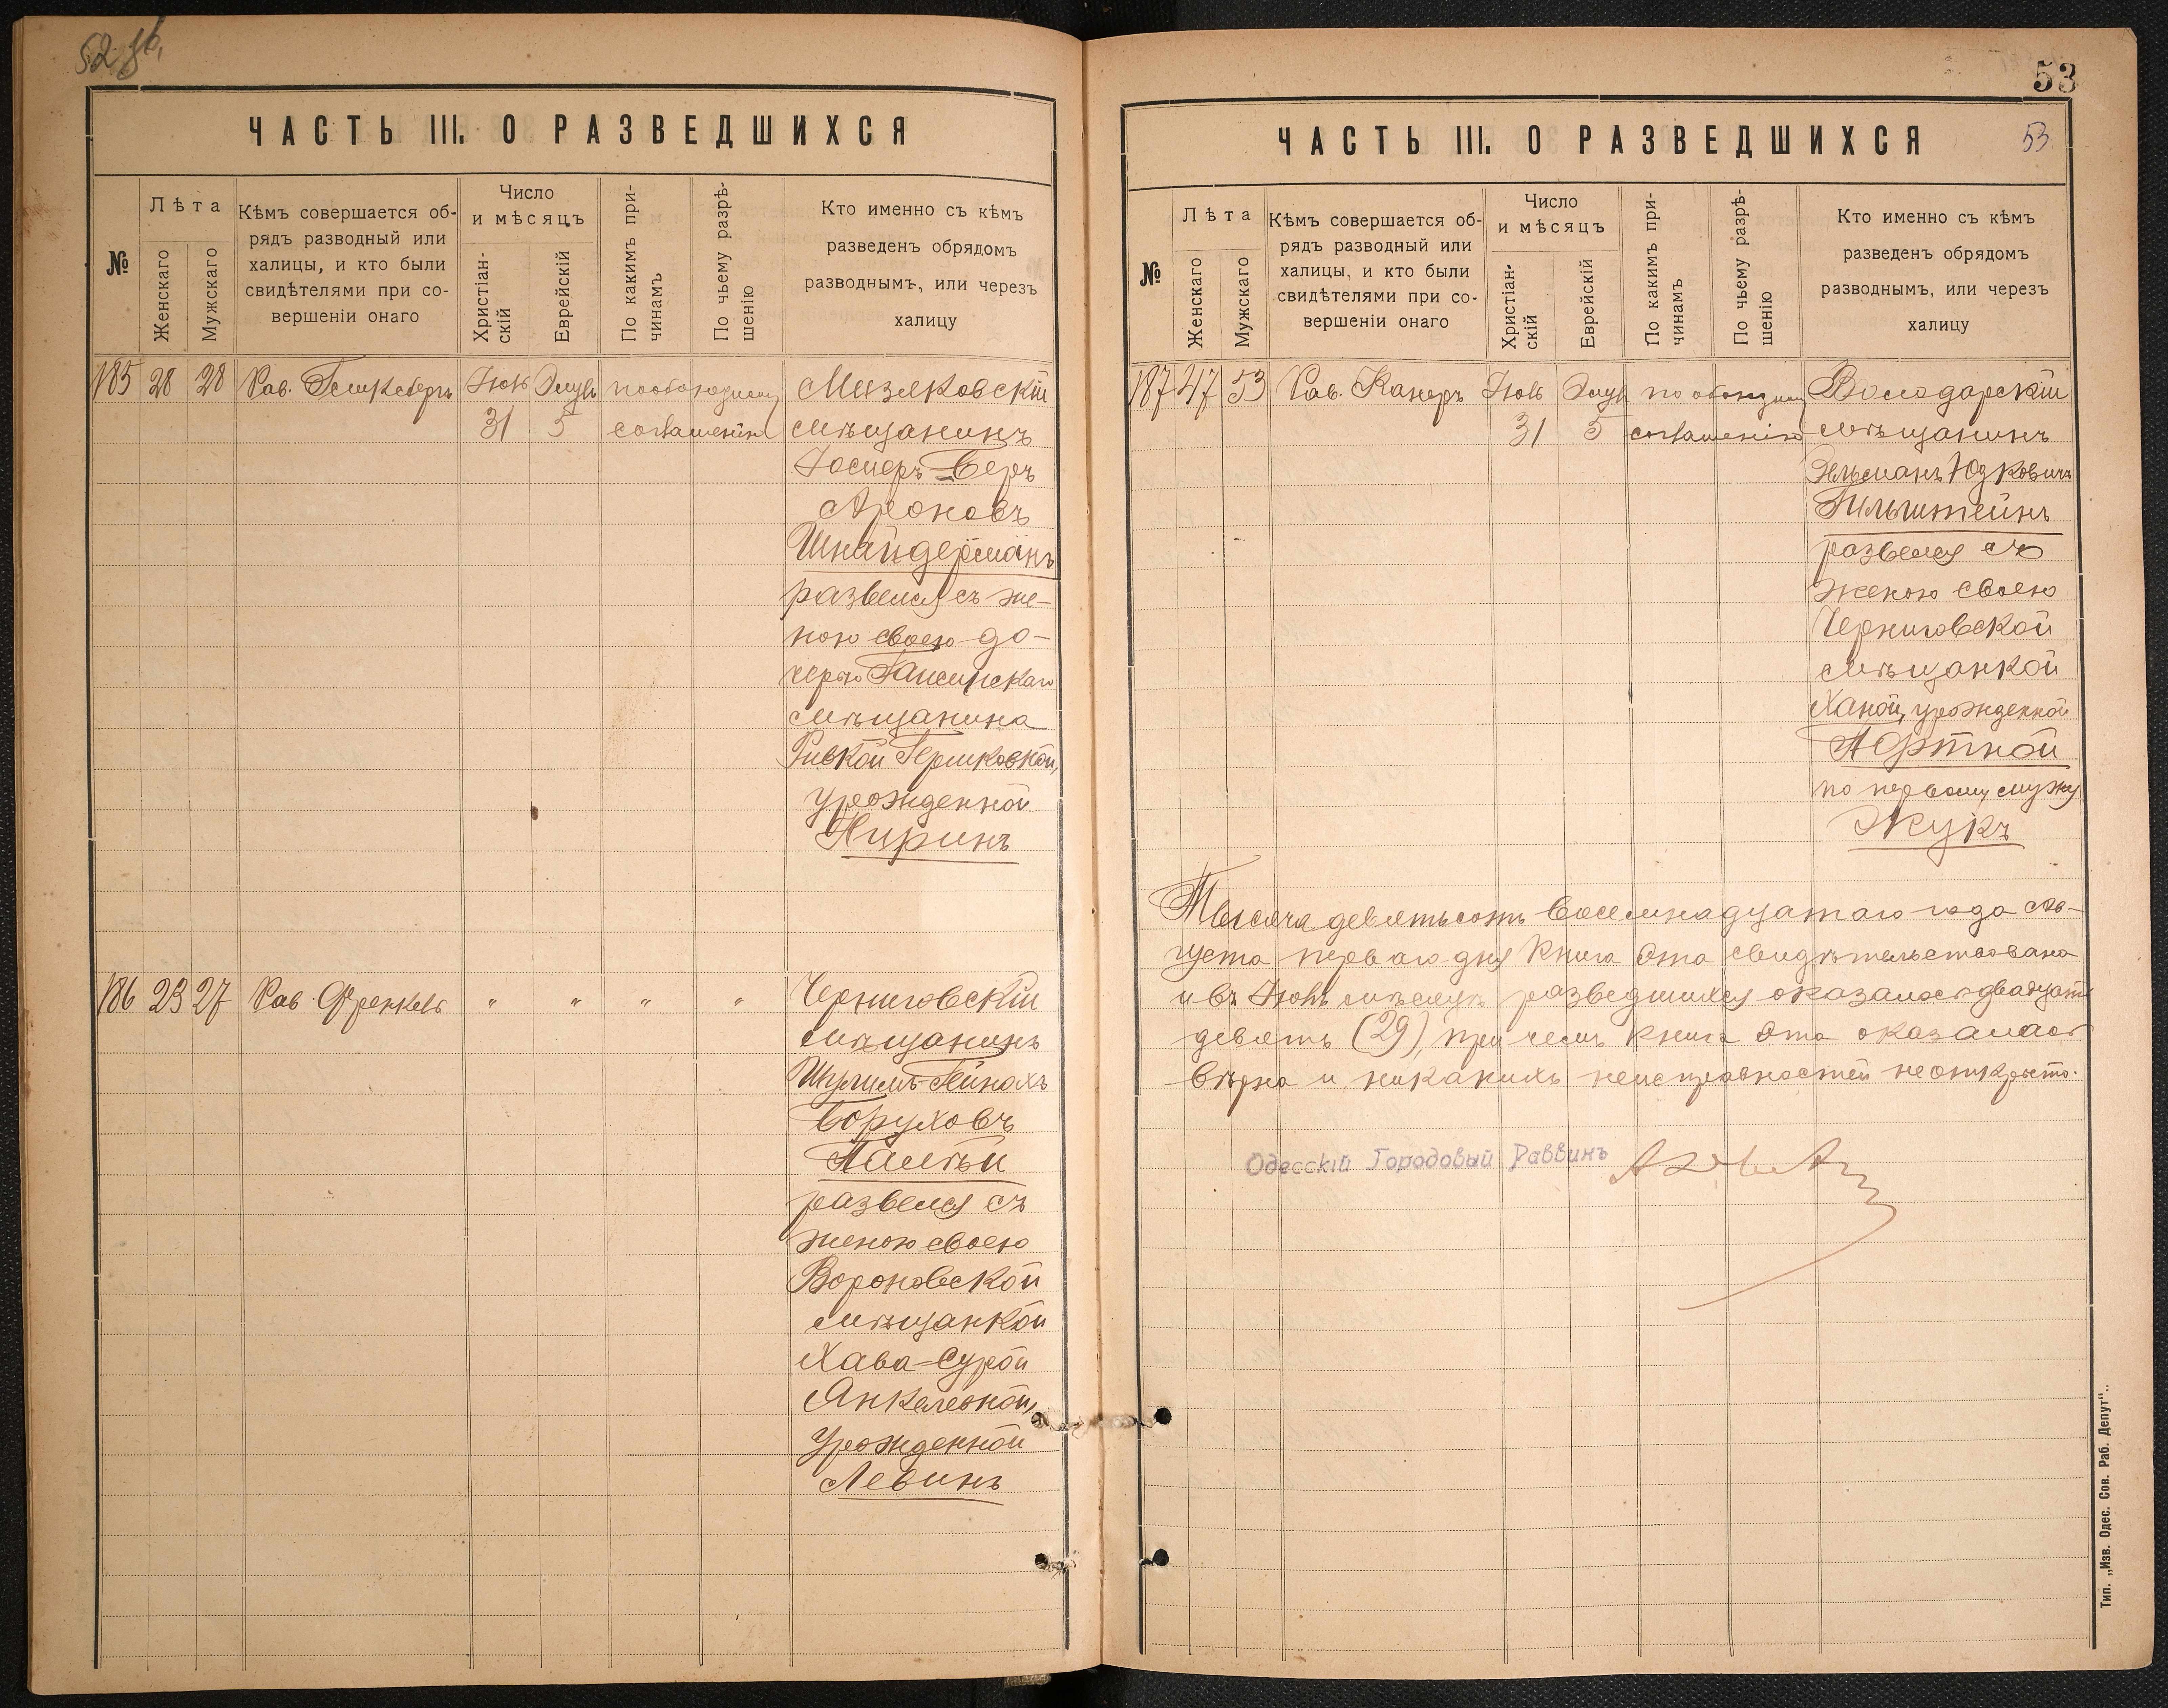 52 об.
ЧАСТЬ III. О РАЗВЕДШИХСЯ
№
Лѣта
Женскаго
Мужскаго
Кѣмъ совершается об-
рядъ разводный или
халицы, и кто были
свидѣтелями при со-
вершеніи онаго
Число
и мѣсяцъ
Христіан-
скій
Еврейскій
По какимъ при-
чинамъ
По чьему разрѣ-
шенію
Кто именно съ кѣмъ
разведенъ обрядомъ
разводнымъ, или черезъ
халицу
185 28 28 Рав. Іюль Элулъ по обоюдному
31 5 соглашенію
Мизяковскій
мѣщанинъ
Іосиеръ-Беръ
Ароновъ
Шнайдерманъ
развелся съ же-
ною своею до-
черью Гайсинскаго
мѣщанина
Ривкой Гершковной,
урожденной
Ниринъ
186 23 27 Рав. Френкель " " " "
Черниговскій
мѣщанинъ
Шулимъ-Пинахъ
Боруховъ
Палѣй
развелся съ
женою своею
Вороновской
мѣщанкой
Хава-Сурой
Янкелевной,
урожденной
Левинъ
53
ЧАСТЬ III. О РАЗВЕДШИХСЯ
53
№
Лѣта
Женскаго
Мужскаго
Кѣмъ совершается об-
рядъ разводный или
халицы, и кто были
свидѣтелями при со-
вершеніи онаго
Число
и мѣсяцъ
Христіан-
скій
Еврейскій
По какимъ при-
чинамъ
По чьему разрѣ-
шенію
Кто именно съ кѣмъ
разведенъ обрядомъ
разводнымъ, или черезъ
халицу
187 47 53 Рав. Канеръ Іюль Элулъ по обоюдному
31 5 соглашенію
Володарскій
мѣщанинъ
Юдковичъ
Гильштейнъ
развелся съ
женою своею
Черниговской
мѣщанкой
Ханой, урожденной
Портной
по первому мужу
Жукъ
Тысяча девятьсотъ восемнадцатаго года Ав-
густа перваго дня книга эта свидѣтельствована
и въ Іюлѣ мѣсяцѣ разведшихся оказалось двадцать
девять (29), при чемъ книга эта оказалась
вѣрна и никакихъ неисправностей не открыто.
Одесскій Городовый Раввинъ
Тип. „Изв. Одес. Сов. Раб. Депут“.